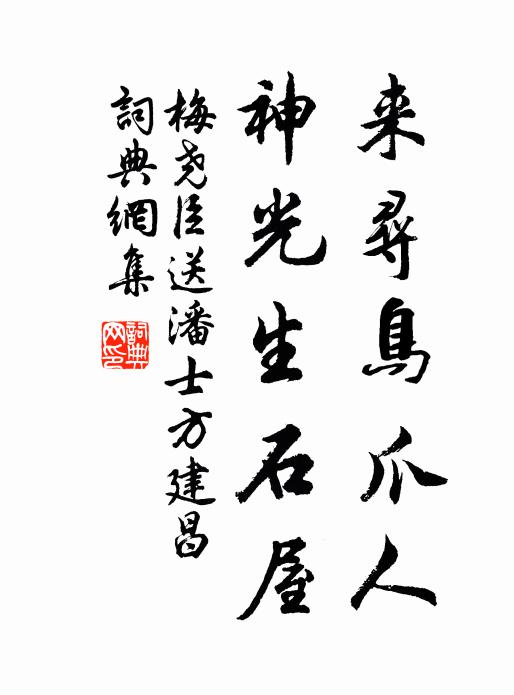 来尋鳥爪人
神光生石屋
梅尧臣送潘士方建昌
詞典網集
詞典网印